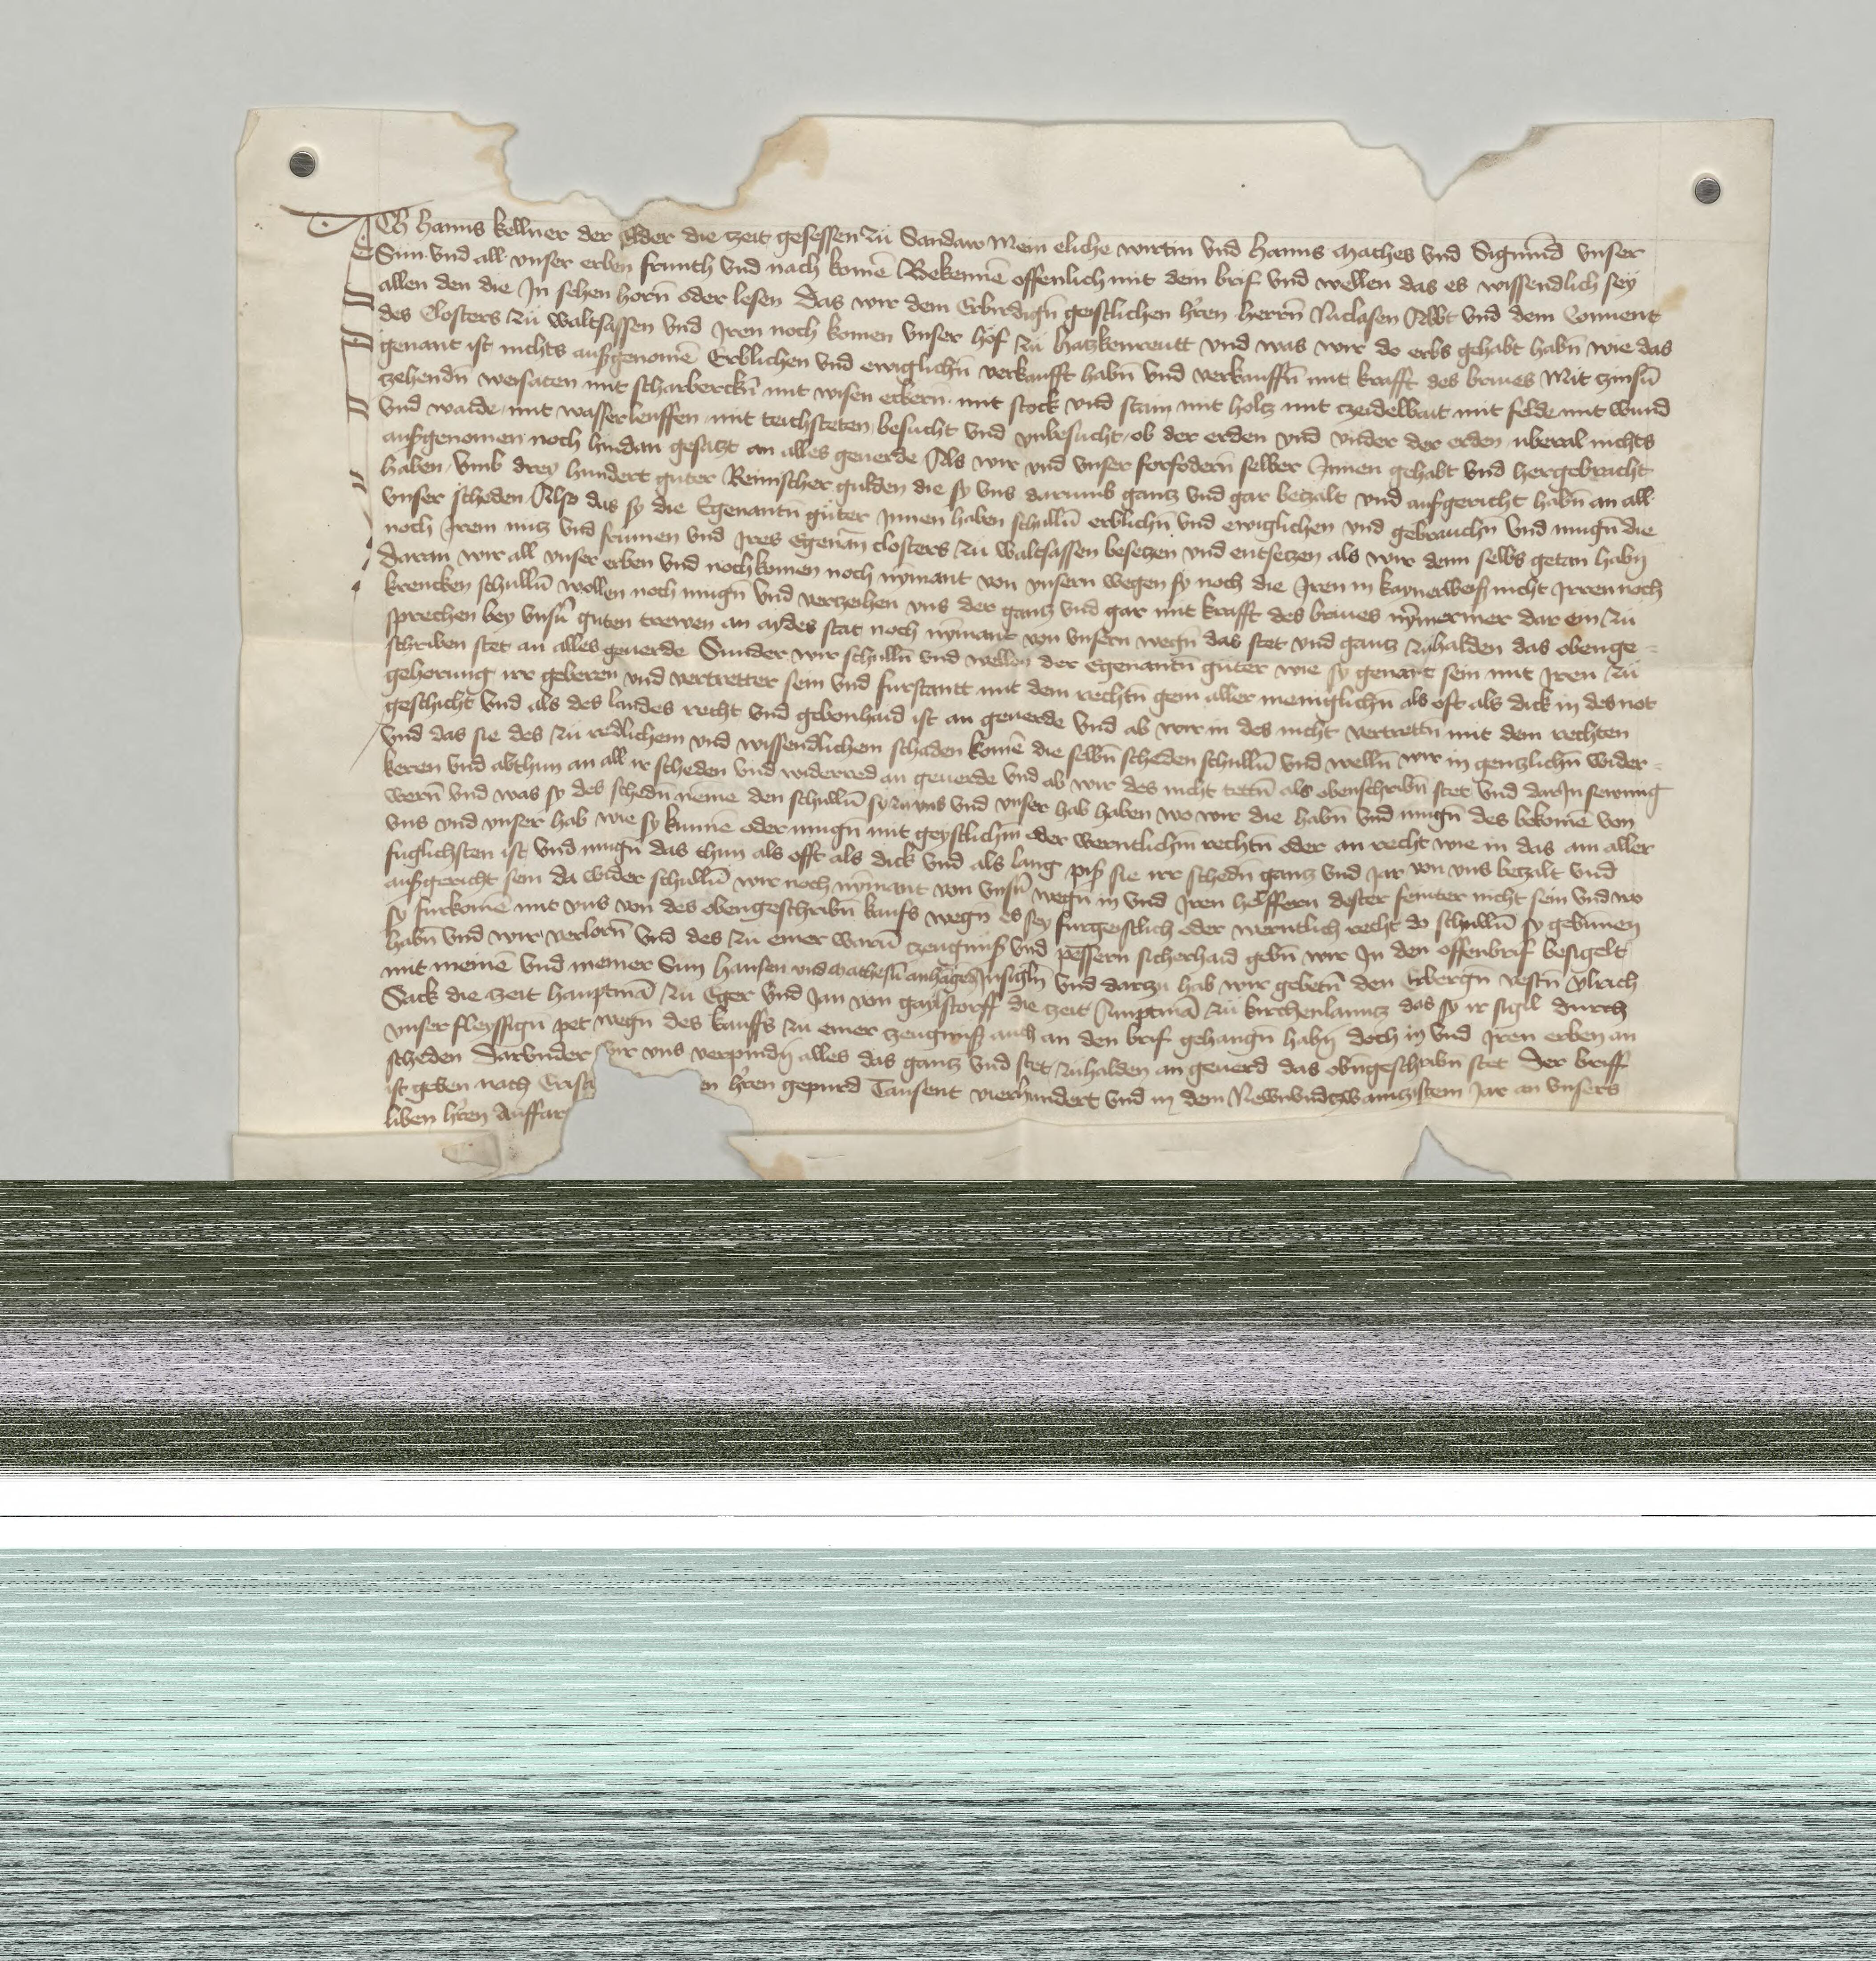 Ich Hanns kellner der Elder die zeit gesessen zu Sandaw Mein eliche wirtin vnd Hanns Mathes vnd Sigmūd vnser
Sun vnd all vnser erben frunth vnd nach komē Bekennē offenlich mit dem brif vnd wellen das es wissendlich sey
allen den die Jn sehen horn̄ oder lesen Das wir dem Erbirdign̄ geistlichen hr̄en herrn̄ Niclasen Abbt vnd dem Conuent
des Closters zu waltsassen vnd Jren noch komen vnser hof zu hatzkenreutt vnd was wir do erbs gehabt habn̄ wie das
genant ist nichts aufgenomē Erblichen vnd ewiglichn̄ verkaufft habn̄ vnd verkauffn̄ mit krafft des briues Mit zinsn̄
zehendn̄ weisaten mit scharberckn̄ mit wisen eckern mit stock vnd stain mit holtz mit czeidelwait mit felde mit wund
vnd waide mit wasserleuffen mit teichsteten besucht vnd vnbesucht ob der erden vnd vnder der erden uberal nichts
aufgenomen noch hindan gesatzt an alles geuerde Als wir vnd vnser forfodern̄ selber Jnnen gehabt vnd hergebracht
haben vmb drey hundert guter Reinischer gulden die sy vns darumb gantz vnd gar betzalt vnd aufgericht habn̄ an all
vnser scheden Also das sy die Egenantn̄ guter Jnnen haben schulln̄ erblichn̄ vnd ewiglichen vnd gebrauchn̄ vnd mugn̄ die
noch Jrem nutz vnd frumen vnd Jres Egenan̄ closters zu waltsassen besetzen vnd entsetzen als wir dem selbs getan habn̄
daran wir all vnser erben vnd nochkomen noch nȳmant von vnsern wegen sy noch die Jren in kaynerweiß nicht Jrren noch
krencken schulln̄ wollen noch mugn̄ vnd verzeihen vns der gantz vnd gar mit krafft des briues nȳmermer dar ein zu
sprechen bey vnsn̄ guten trewen an aydes stat noch nȳmant von vnsern wegn̄ das stet vnd gantz zuhalden das obenge-
schriben stet an alles geuerde Sunder wir schulln̄ vnd wellen der Egenantn̄ guter wie sy genant sein mit Jren zu
gehorung irr geweren vnd vertretter sein vnd furstantt mit dem rechtn̄ gein aller meniglichn̄ als oft als dick in des not
geschicht vnd als des landes recht vnd gewonhaid ist an geuerde vnd ab wir in des nicht vertrettn̄ mit dem rechten
vnd das sie des zu redlichem vnd wissendlichem schaden komē die selbn̄ scheden schulln̄ vnd welln̄ wir in gentzlichn̄ wider-
keren vnd abthun an all ir scheden vnd widerred an geuerde vnd ab wir des nicht tettn̄ als obenschribn̄ stet vnd darJn sewmig
wern̄ vnd was sy des schedn̄ nēme den schulln̄ sy zu vns vnd vnser hab haben wo wir die habn̄ vnd mugn̄ des bekomē von
vns vnd vnser hab wie sy kunnē oder mugn̄ mit geystlichm̄ oder werntlichm̄ rechtn̄ oder an recht wie in das am aller
fuglichsten ist vnd mugn̄ das thun als offt als dick vnd als lang piß sie irr schedn̄ gantz vnd gar von vns betzalt vnd
aufgericht sein da wider schulln̄ wir noch nȳmant von vnsn̄ wegn̄ in vnd Jren helffern dester feinter nicht sein vnd wo
sy furkomē mit vns von des obengeschribn̄ kaufs wegn̄ es sey fur geistlich oder werntlich recht do schulln̄ sy gewunnen
habn̄ vnd wir verlorn̄ vnd des zu einer warn̄ czeugnuß vnd pessern sicherhaid gebn̄ wir Jn den offenbrif besigelt
mit meinē vnd meiner Sun Hansen vnd Mathesn̄ anhangēd Jnsigln̄ vnd darzu hab wir gebetn̄ den Erbergn̄ vestn̄ Vlrich
Sack die zeit hauptmā zu Eger vnd Jan von gaylstorff die zeit Amptmā zu kirchenlamitz das sy ir sigill durch
vnser fleyssign̄ pet wegn̄ des kauffs zu einer zeugnuß auch an den brif gehangn̄ habn̄ doch in vnd Jren erben an
scheden Darunder wir vns verpindn̄ alles das gantz vnd stet zuhalden an geuerd das obn̄geschribn̄ stet Der briff
ist geben nach Cristi en hr̄en gepurd Tausent vierhundert vnd in dem Newnvndczwaintzistem Jar an vnsers
liben hr̄en Auffar